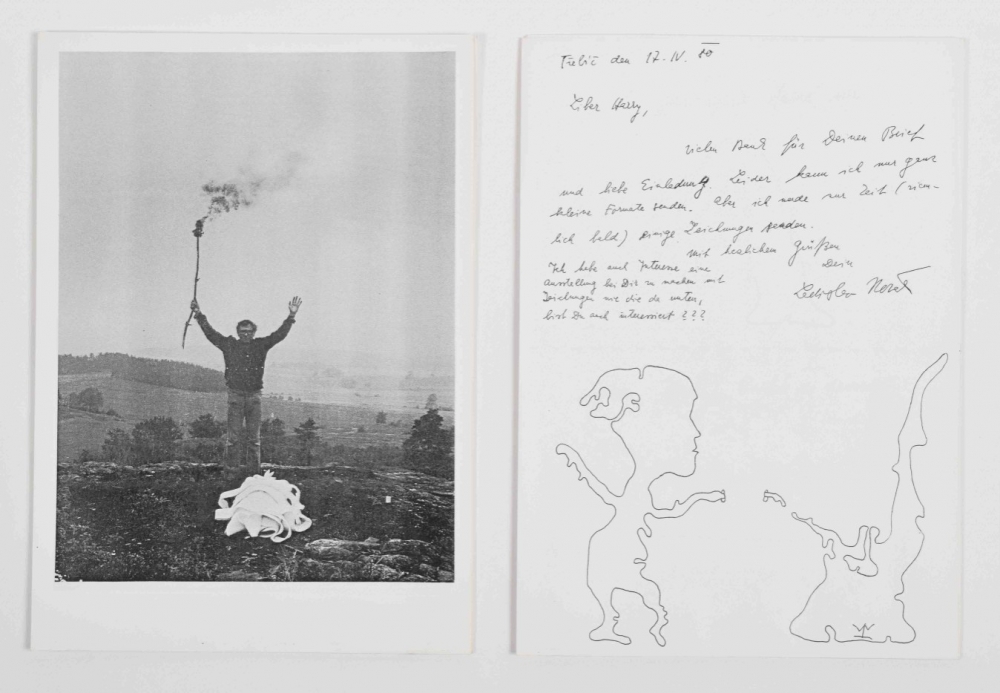 Třebíč den 17. IV. 80
Liber Harry,
vielen Dank für Deinen Brief
und liebe Einladung. Leider kann ich nur ganz
kleine Formate senden. Aber ich werde zur Zeit (ziem-
lich bald) einige Zeichnungen senden.
mit herzlichen Grüßen
Dein
Ladislav Novák
Ich habe auch Interesse eine
Ausstellung bei Dir zu machen mit
Zeichnungen wie die da unten,
bist Du auch interessiert ???